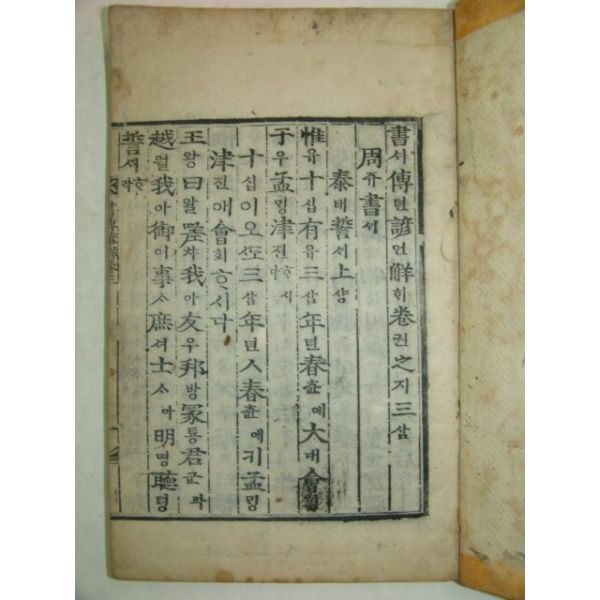 書셔傳젼諺언觧ᄒᆡ卷권之지三삼
周쥬書셔
泰태誓셔上샹
惟유十십有유三삼年년春츈에大대會회
于우孟ᄆᆡᆼ津진ᄒᆞ시다
十십이오ᄯᅩ三삼年년ㅅ春츈에키孟ᄆᆡᆼ
津진애會회ᄒᆞ시다
王왕曰왈嗟차我아友우邦방冡통君군과
越월我아御어事ᄉᆞ庶셔士ᄉᆞ아明명聽텽
誓셔ᄒᆞ라